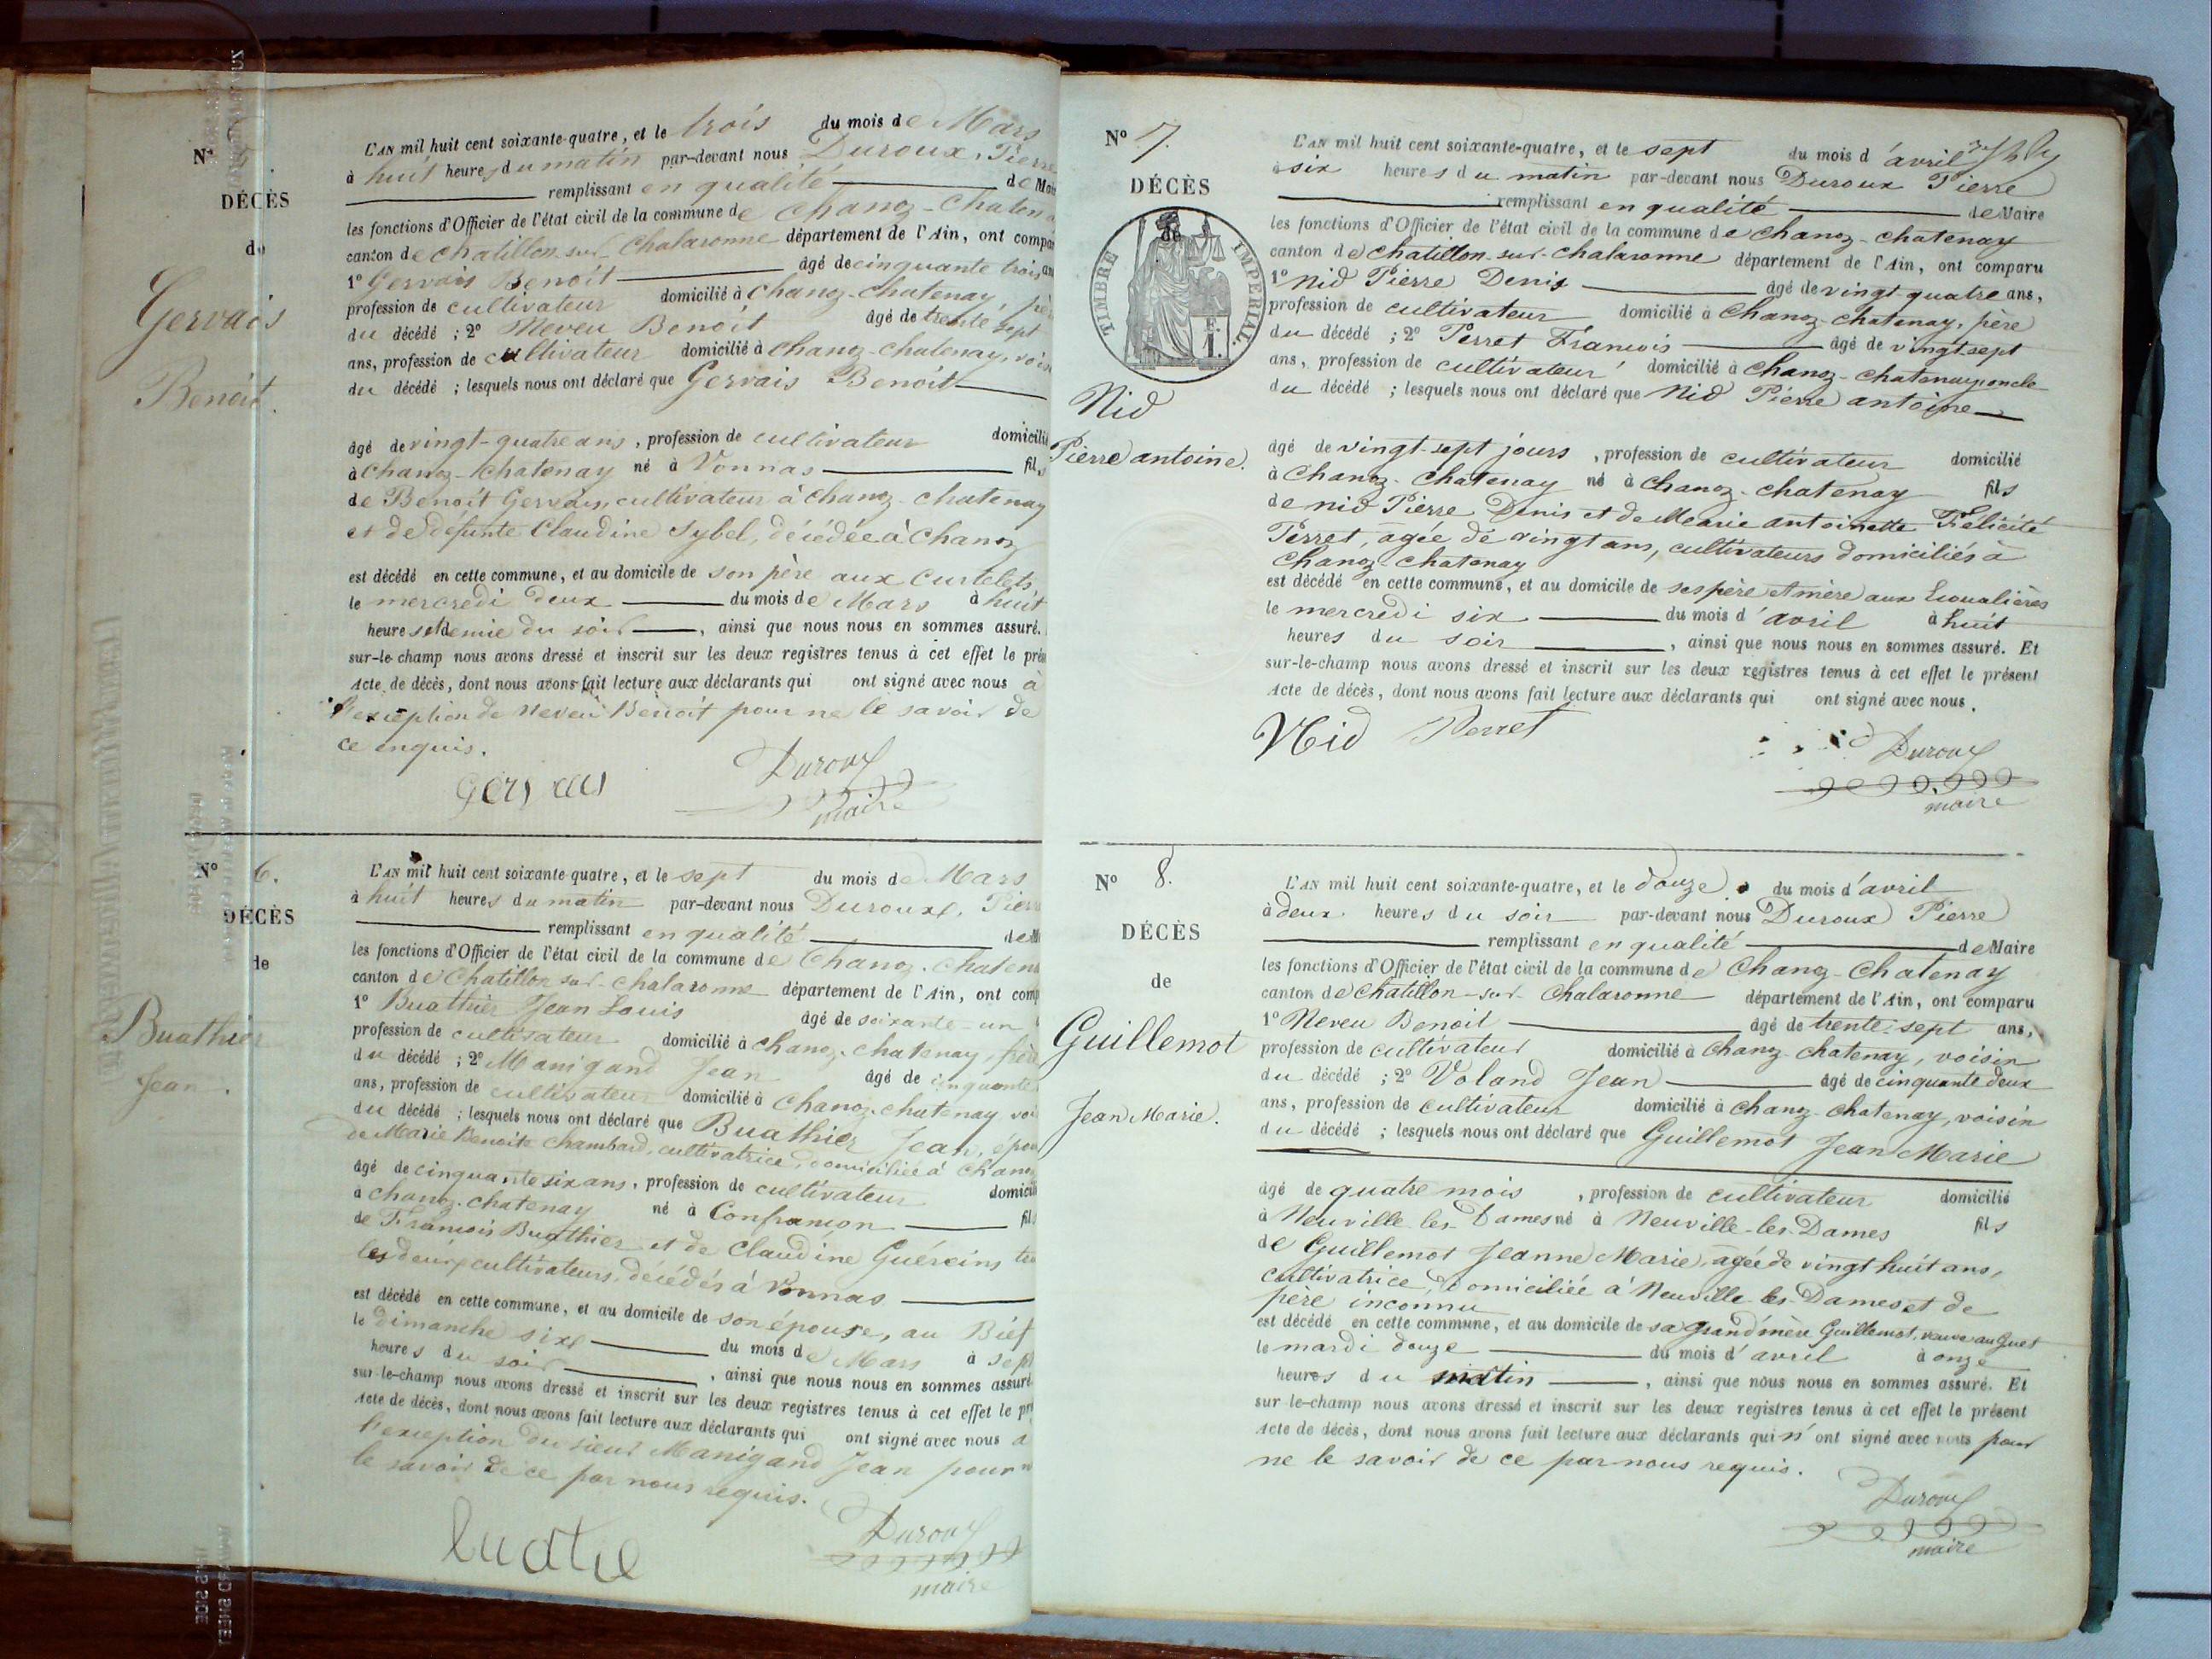 N° 5.
DÉCÈS
de
Gervais
Benoit.
L'AN mil huit cent soixante-quatre, et le trois du mois de Mars
à huit heures du matin par-devant nous Duroux, Pierre
remplissant en qualité de Mai
les fonctions d'Officier de l'état civil de la commune de Chanoz-Chaten
canton de Chatillon-sur-Chalaronne département de l'Ain, ont compa
1° Gervais Benoit âgé de cinquante trois an
profession de cultivateur domicilié à Chanoz-Chatenay, pè
du décédé ; 2° Neveu Benoit âgé de trente sept
ans, profession de cultivateur domicilié à Chanoz-chatenay, vois
du décédé ; lesquels nous ont déclaré que Gervais Benoit
âgé de vingt-quatre ans, profession de cultivateur domicilié
à Chanoz-Chatenay né à Vonnas fils
de Benoit Gervais, cultivateur à Chanoz-chatenay
et de défunte Claudine Sybel, décédée à Chanoz
est décédé en cette commune, et au domicile de son père aux Curtelets
le mercredi deux du mois de Mars à huit
heures et demie du soir, ainsi que nous nous en sommes assuré.
sur-le-champ nous avons dressé et inscrit sur les deux registres tenus à cet effet le pré
Acte de décès, dont nous avons fait lecture aux déclarants qui ont signé avec nous à
l'exception de Neveu Benoit pour ne le savoir de
ce enquis.
Gervais Duroux
maire
N° 6.
DÉCÈS
de
Buathier
Jean.
L'AN mil huit cent soixante-quatre, et le sept du mois de Mars
à huit heures du matin par-devant nous Duroux, Pierr
remplissant en qualité de M
les fonctions d'Officier de l'état civil de la commune de Chanoz-Chaten
canton de Chatillon-sur-Chalaronne département de l'Ain, ont comp
1° Buathier Jean Louis âgé de soixante-un
profession de cultivateur domicilié à Chanoz-chatenay, frère
du décédé ; 2° Manigand Jean âgé de cinquante
ans, profession de cultivateur domicilié à Chanoz-chatenay voi
du décédé ; lesquels nous ont déclaré que Buathier Jean, épou
de Marie Benoite Chambard, cultivatrice, domiciliée à Chanoz
âgé de cinquante six ans, profession de cultivateur domicili
à Chanoz-chatenay né à Confrançon fils
de François Buathier et de Claudine Guéreins tou
les deux cultivateurs, décédés à Vonnas
est décédé en cette commune, et au domicile de son épouse, au Bief
le dimanche six du mois de Mars à sept
heures du soir, ainsi que nous nous en sommes assuré
sur-le-champ nous avons dressé et inscrit sur les deux registres tenus à cet effet le pré
Acte de décès, dont nous avons fait lecture aux déclarants qui ont signé avec nous à
l'exception du sieur Manigand Jean pour n
le savoir de ce par nous requis.
Duroux
maire
N° 7.
DÉCÈS
de
TIMBRE IMPÉRIAL
Nid
Pierre antoine.
L'AN mil huit cent soixante-quatre, et le sept du mois d'avril
à six heures du matin par-devant nous Duroux Pierre
remplissant en qualité de Maire
les fonctions d'Officier de l'état civil de la commune de Chanoz-chatenay
canton de Chatillon-sur-chalaronne département de l'Ain, ont comparu
1° Nid Pierre Denis âgé de vingt-quatre ans,
profession de cultivateur domicilié à Chanoz-chatenay, père
du décédé ; 2° Perret François âgé de vingt sept
ans, profession de cultivateur domicilié à Chanoz-chatenay oncle
du décédé ; lesquels nous ont déclaré que Nid Pierre antoine
âgé de vingt-sept jours, profession de cultivateur domicilié
à Chanoz-chatenay né à Chanoz-chatenay fils
de nid Pierre Denis et de Marie antoinette Félicité
Perret, agée de vingt ans, cultivateurs domiciliés à
Chanoz-Chatenay
est décédé en cette commune, et au domicile de ses père et mère aux
le mercredi six du mois d'avril à huit
heures du soir, ainsi que nous nous en sommes assuré. Et
sur-le-champ nous avons dressé et inscrit sur les deux registres tenus à cet effet le présent
Acte de décès, dont nous avons fait lecture aux déclarants qui ont signé avec nous.
Nid Perret
Duroux
maire
N° 8.
DÉCÈS
de
Guillemot
Jean Marie.
L'AN mil huit cent soixante-quatre, et le douze du mois d'avril
à deux heures du soir par-devant nous Duroux Pierre
remplissant en qualité de Maire
les fonctions d'Officier de l'état civil de la commune de Chanoz-Chatenay
canton de Chatillon-sur-Chalaronne département de l'Ain, ont comparu
1° Neveu Benoit âgé de trente sept ans,
profession de cultivateur domicilié à Chanoz-chatenay, voisin
du décédé ; 2° Voland Jean âgé de cinquante deux
ans, profession de cultivateur domicilié à Chanoz-chatenay, voisin
du décédé ; lesquels nous ont déclaré que Guillemot Jean Marie
âgé de quatre mois, profession de cultivateur domicilié
à Neuville-les-Dames né à Neuville-les-Dames fils
de Guillemot Jeanne Marie, agée de vingt huit ans,
cultivatrice, domiciliée à Neuville-les-Dames et de
père inconnu
est décédé en cette commune, et au domicile de sa grand'mère Guillemot, veuve au Guet
le mardi douze du mois d'avril à onze
heures du matin, ainsi que nous nous en sommes assuré. Et
sur-le-champ nous avons dressé et inscrit sur les deux registres tenus à cet effet le présent
Acte de décès, dont nous avons fait lecture aux déclarants qui n'ont signé avec nous pour
ne le savoir de ce par nous requis.
Duroux
maire